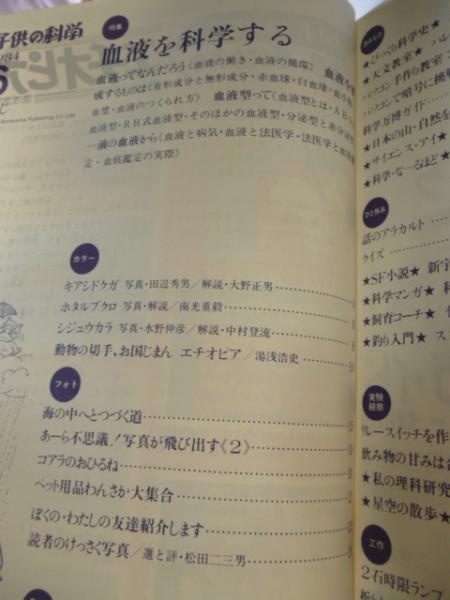 子供の科学
特集
血液を科学する
血液ってなんだろう〈血液の働き・血液の循環〉
成するものは〈有形成分と無形成分・赤血球・白血球・血小
血漿・血液のつくられ方〉 血液型って〈血液型とは・AB
液型・RH式血液型・そのほかの血液型・分泌型と非分
一滴の血液から〈血液と病気・血液と法医学・法医学と血
定・血痕鑑定の実際〉
カラー
キアシドクガ 写真・田辺秀男/解説・大野正男
ホタルブクロ 写真・解説/南光重毅
シジュウカラ 写真・水野仲彦/解説・中村登流
動物の切手、お国じまん エチオピア/湯浅浩史
フォト
海の中へとつづく道
あーら不思議!写真が飛び出す《2》
コアラのおひるね
ペット用品わんさか大集合
ぼくの・わたしの友達紹介します
読者のけっさく写真/選と評・松田二三男
★びっくり科学史★
★天文教室★ ハレ
パソコン手作り教室
パソコンで暗号に挑戦
科学万博ガイド
★日本の山・自然を
★サイエンス・アイ★
★科学・なーるほど★
ひと休み
話のアラカルト
クイズ
★SF小説★ 新宇
★科学マンガ★
★飼育コーチ★
★釣り入門★ ス
実験
観察
リレースイッチを作
飲み物の甘みは
★私の理科研究
★星空の散歩★
工作
2石時限ランプ